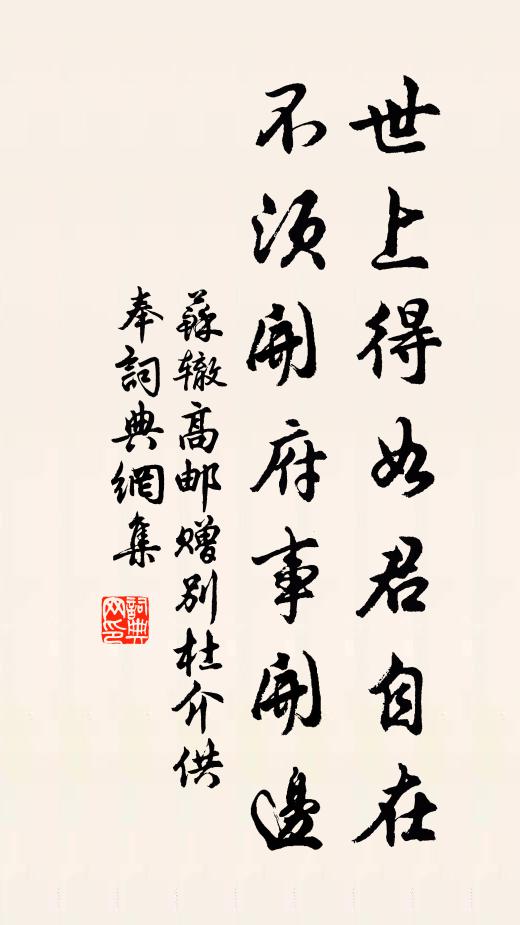 世上得如君自在
不須開府事開邊
蘇辙高邮赠别杜介供
奉詞典網集
詞典
网印